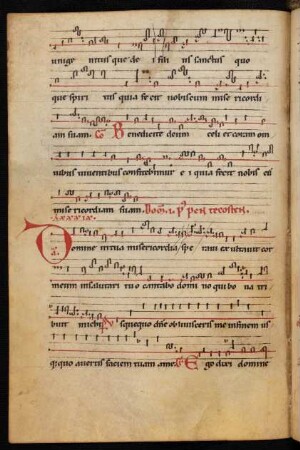 unige nitus que de i fili us sanctus quo
que spiri tus quia fecit nobiscum mise ricordi
am suam. Co Benedicite deum celi et coram om
nibus viventibus confitebimur e i quia fecit nobis cū
misericordiam suam. Domca. p' pen tecosten.
Domine in tua misericordia spe ravi exultavit cor
meum in salutari tuo cantabo domino qui bona tri
buit michi. Usquequo dñe oblivisceris me in finem us
quequo avertis faciem tuam a me. Ego dixi domine